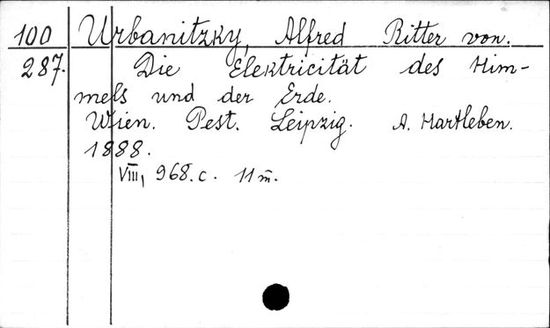 100 Urbanitzky, Alfred Ritter von.
287. Die Elektricität des Him-
mels und der Erde.
Wien. Pest. Leipzig. A. Hartleben.
1888.
VIII, 968.c. 11 m.